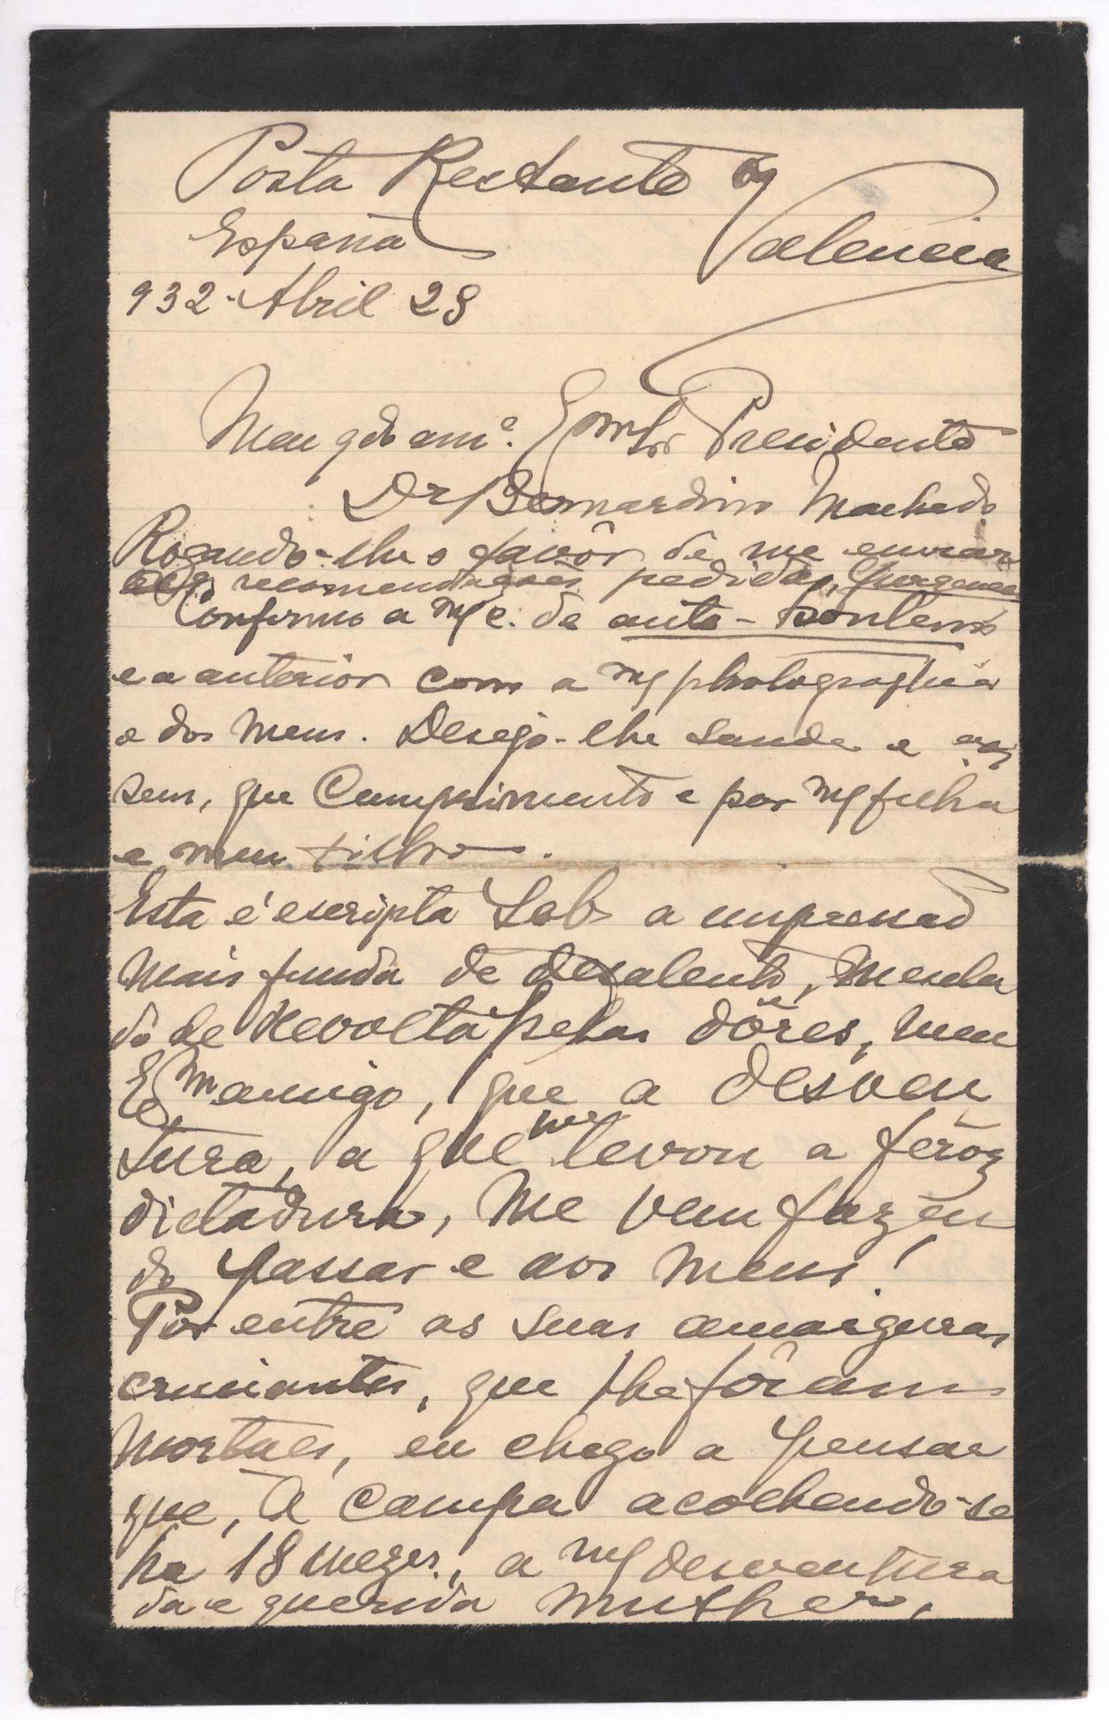 Posta Restante
Valencia
España
932 - Abril 28
Meu qdo amº. Exmo Sr Presidente
Dr Bernardino Machado
Rogando-lhe o favôr de me enviar
recomendações pedidas,
Confirmo a mª c. de ante-hontem
e a anterior com a mª photographia
e dos meus. Desejo-lhe saude e aos
seus, que Cumprimento e por mª filha
e meu filho.
Esta é escripta Sob a impressão
mais funda de desalento, mescla
do de Revolta pelas dôres, meu
Exmo amigo, que a desven
tura, a que me levou a feróz
dictadura, me vem fazen
do passar e aos meus!
Por entre as suas amarguras
cruciantes, que lhe fôram
mortaes, eu chego a pensar
que, a campa acolhendo-se
ha 18 mezes, a mª desventura
da e querida mulher,